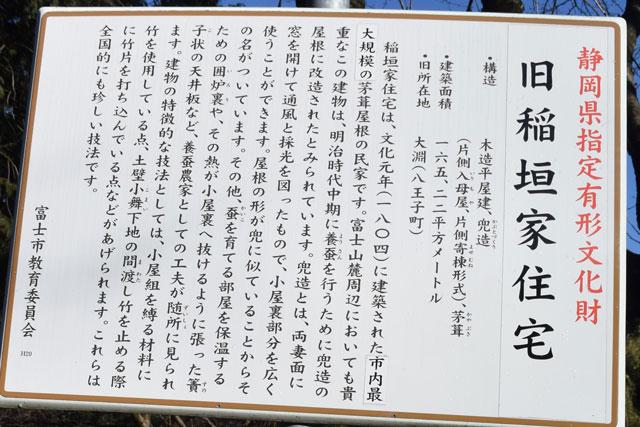 静岡県指定有形文化財
旧稲垣家住宅
・構造　木造平屋建、兜造
（片側入母屋、片側寄棟形式）、茅葺
・建築面積　一六五、二二平方メートル
・旧所在地　大淵（八王子町）
稲垣家住宅は、文化元年（一八〇四）に建築された市内最
大規模の茅葺屋根の民家です。富士山麓周辺においても貴
重なこの建物は、明治時代中期に養蚕を行うために兜造の
屋根に改造されたとみられています。兜造とは、両妻面に
窓を開けて通風と採光を図ったもので、小屋裏部分を広く
使うことができます。屋根の形が兜に似ていることからそ
の名がついています。その他、蚕を育てる部屋を保温する
ための囲炉裏や、その熱が小屋裏へ抜けるように張った簀
子状の天井板など、養蚕農家としての工夫が随所に見られ
ます。建物の特徴的な技法としては、小屋組を縛る材料に
竹を使用している点、土壁小舞下地の間渡し竹を止める際
に竹片を打ち込んでいる点などがあげられます。これらは
全国的にも珍しい技法です。
富士市教育委員会
H20